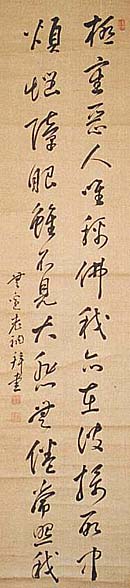 極重惡人唯稱佛我亦在彼攝取中
煩惱障眼雖不見大悲無倦常照我
老衲書